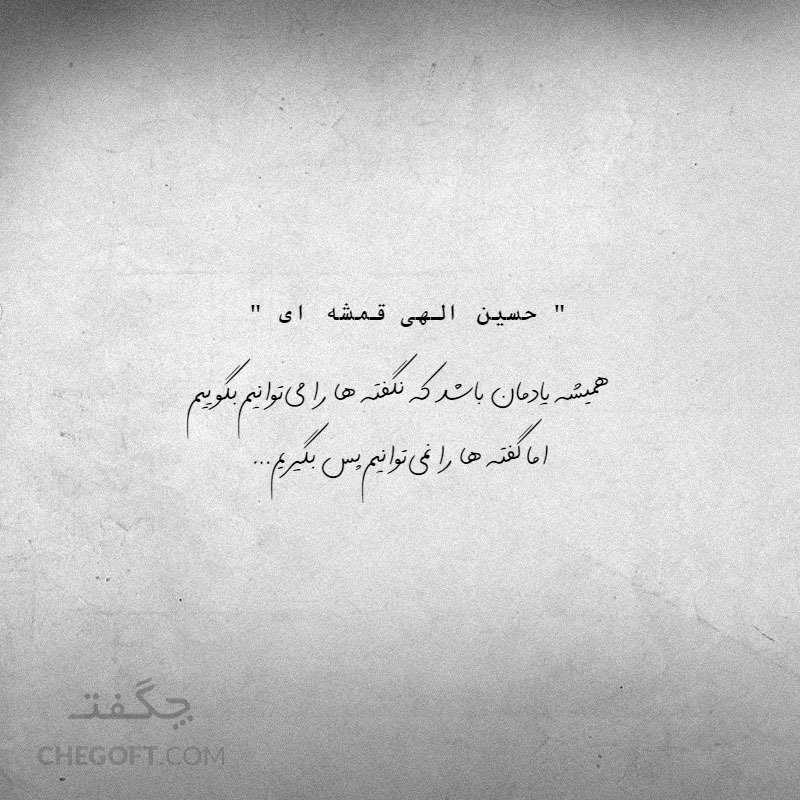 " حسین الهی قمشه ای "
همیشه یادمان باشد که نگفته ها را می‌توانیم بگوییم
اما گفته ها را نمی‌توانیم پس بگیریم...
چگفت
CHEGOFT.COM